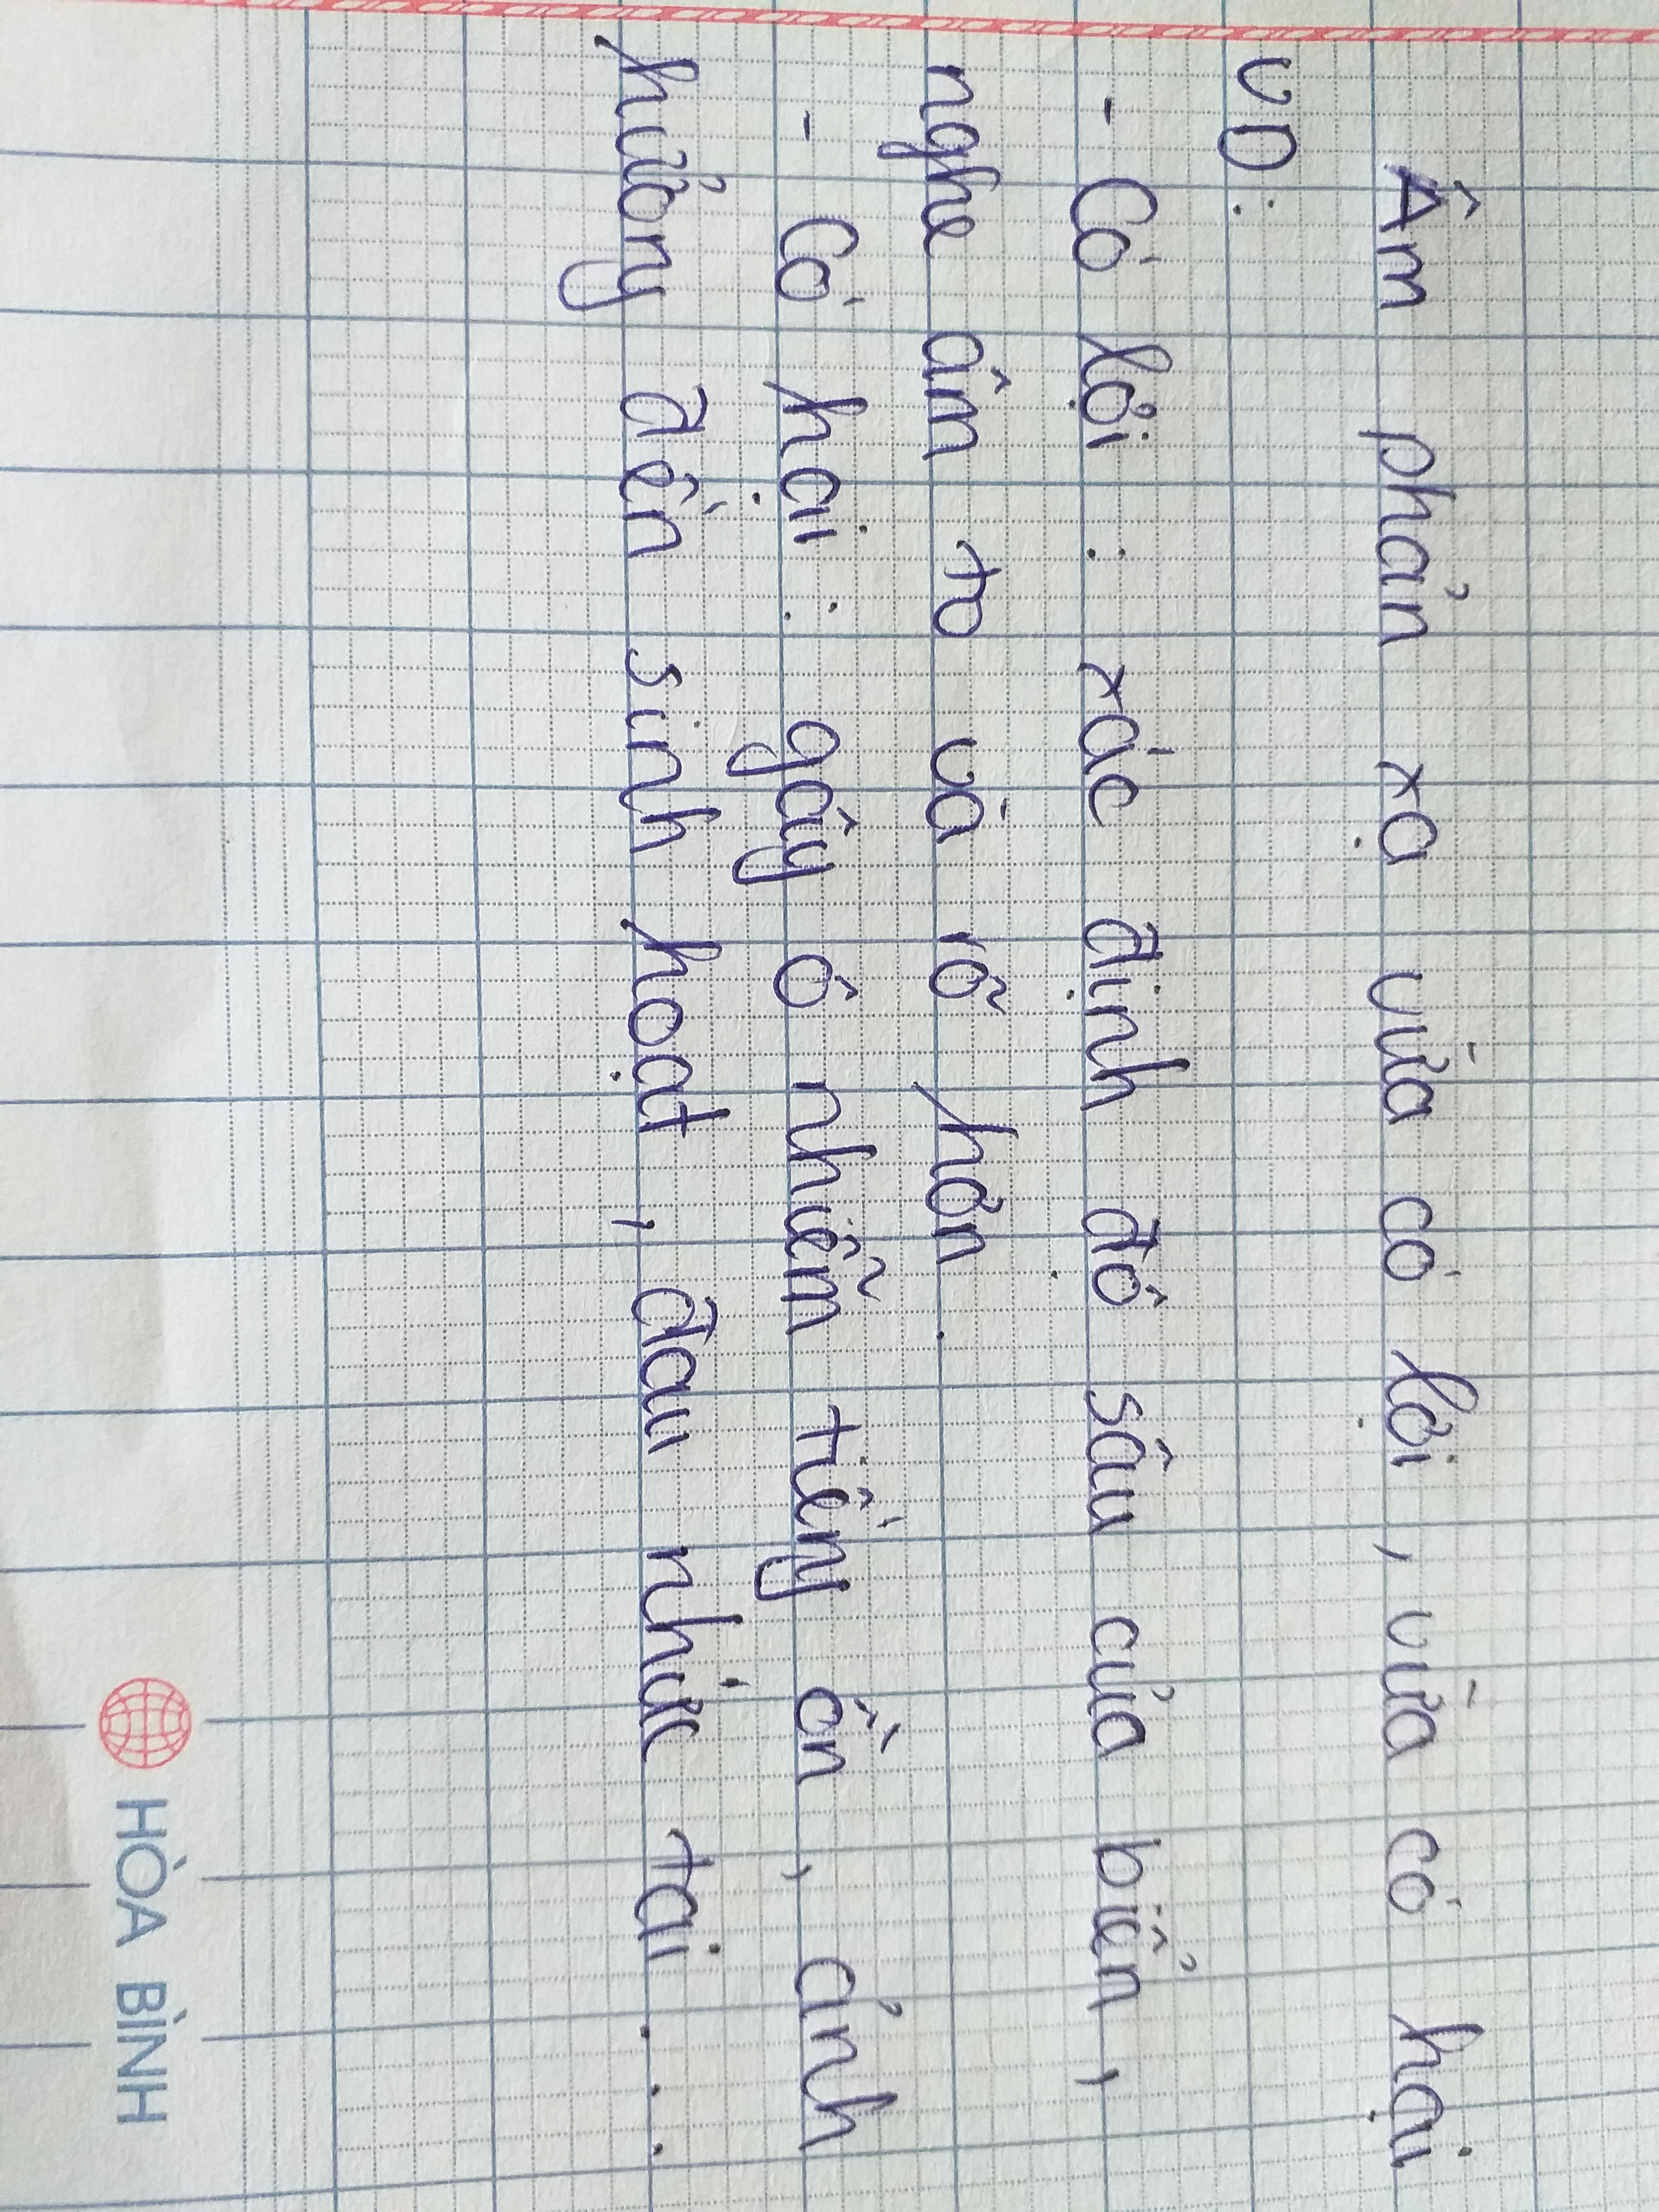 Âm phản xạ vừa có lợi, vừa có hại
VD:
- Có lợi: xác định độ sâu của biển,
nghe âm to và rõ hơn.
- Có hại: gây ô nhiễm tiếng ồn, ảnh
hưởng đến sinh hoạt, đau nhức tai...
HÒA BÌNH